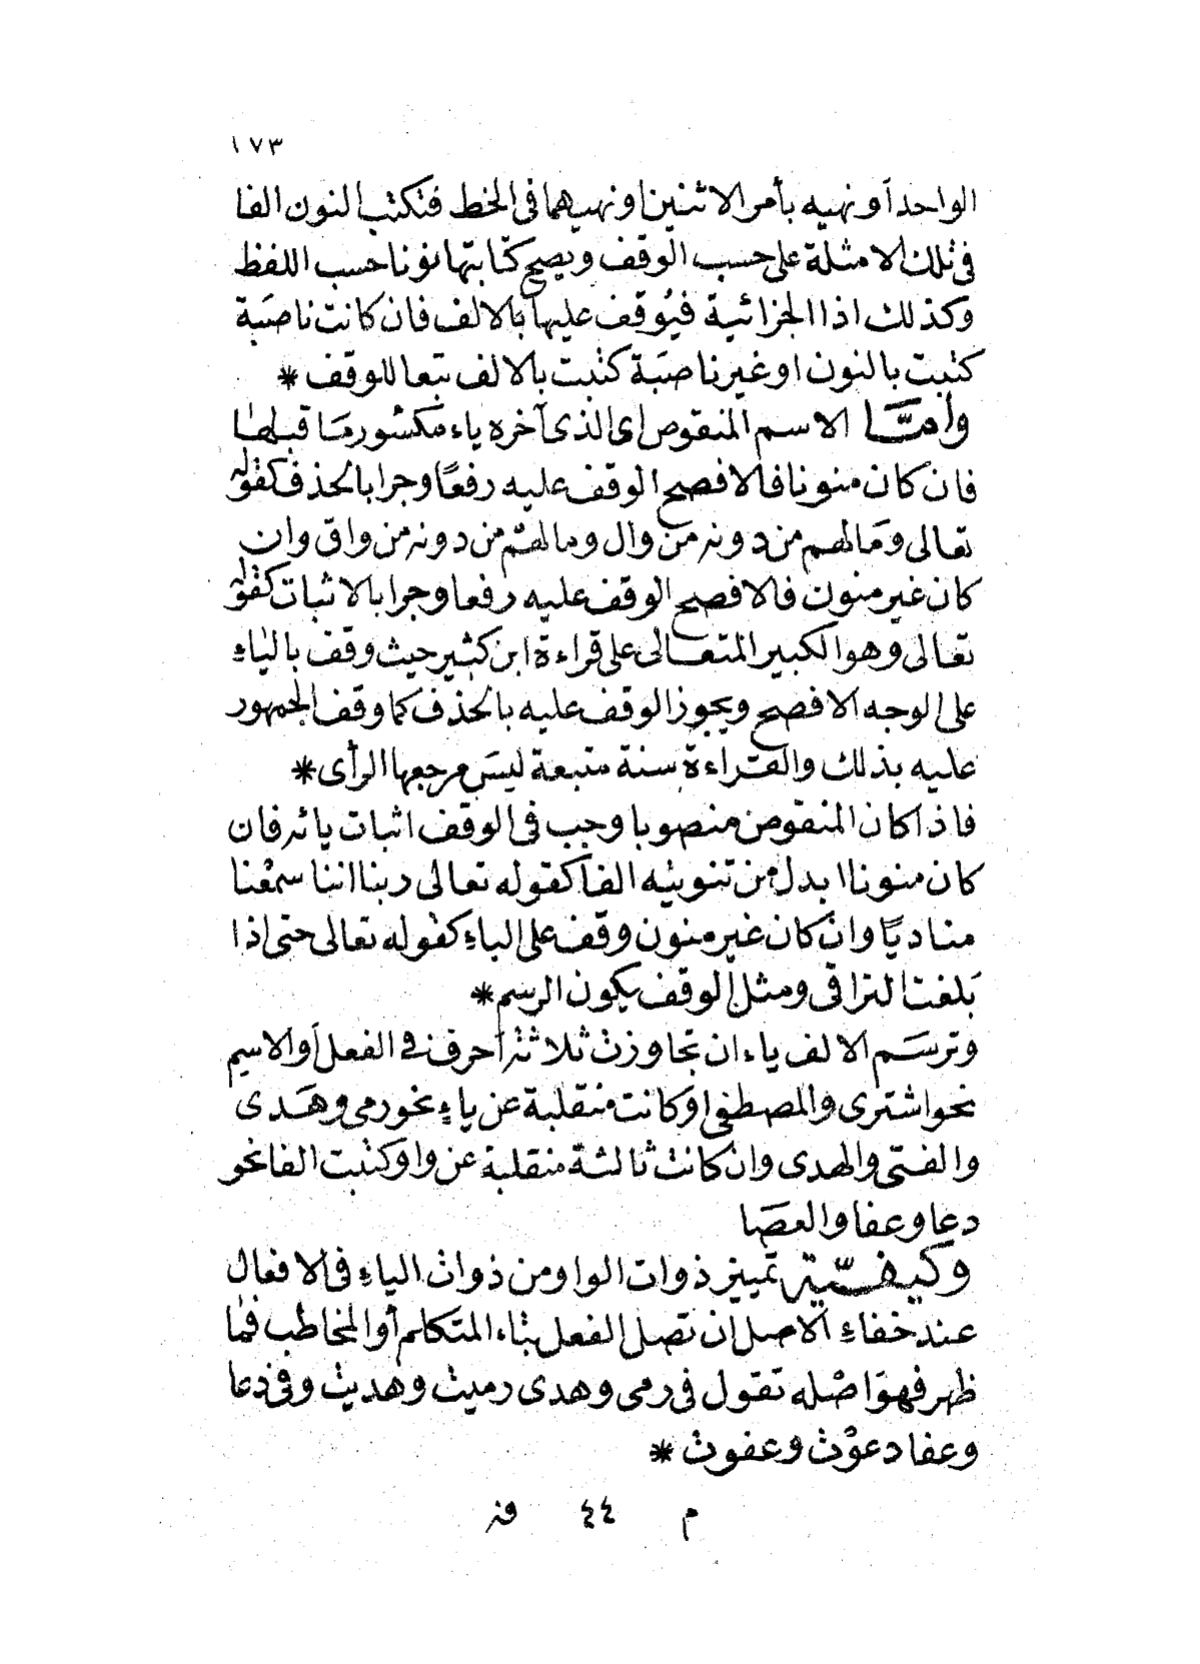 ١٧٣
الواحد أو نهيه بأمر الاثنين او نهيهما فى الخط فتكتب النون الفا
فى تلك الامثلة على حسب الوقف ويصح كتابتها نونا حسب اللفظ
وكذلك اذا الجزائية فيُوقف عليها بالالف فان كانت ناصَبة
كتبت بالنون او غير ناصبَة كتبت بالالف تبعا للوقف *
وأمَّا الاسم المنقوص اى الذى آخره ياء مكسور مَا قبلها
فان كان منونا فالافصح الوقف عليه رفعًا وجرا بالحذف كقوله
تعالى وَمَالهم من دونه من وال ومالهم من دونه من واق وان
كان غير منون فالافصح الوقف عليه رفعا وجرا بالاثبات كقوله
تعالى وهو الكبير المتعالى على قراءة ابن كثير حيث وقف بالياءِ
على الوجه الافصح ويجوز الوقف عليه بالحذف كما وقف الجمهور
عليه بذلك والقراءة سنة متبعة ليسَ مرجعها الرأى *
فاذا كان المنقوص منصوبا وجب فى الوقف اثبات يائه فان
كان منونا ابدل من تنوينه الفا كقوله تعالى ربنا اننا سمعْنا
مناديًا وان كان غير منون وقف على الياءِ كقوله تعالى حتى اذا
بَلغت التراقى ومثل الوقف يكون الرسم *
وترسَم الالف ياء ان تجاوزت ثلاثة أحرف فى الفعل أو الاسم
نحو اشترى والمصطفى او كانت منقلبة عن ياءٍ نحو رمى وهَدى
والفتى والهدى وان كانت ثالثة منقلبة عن واو كتبت الفا نحو
دعا وعفا والعصَا
وكيفيّة تمييز ذوات الواو من ذوات الياءِ فى الافعال
عند خفاءِ الاصل ان تصل الفعل بتاء المتكلم أو المخاطب فما
ظهر فهوَ اصْله تقول فى رمى وهدى رميت وهديت وفى دعا
وعفا دعوْت وعفوت *
م ٤٤ فه